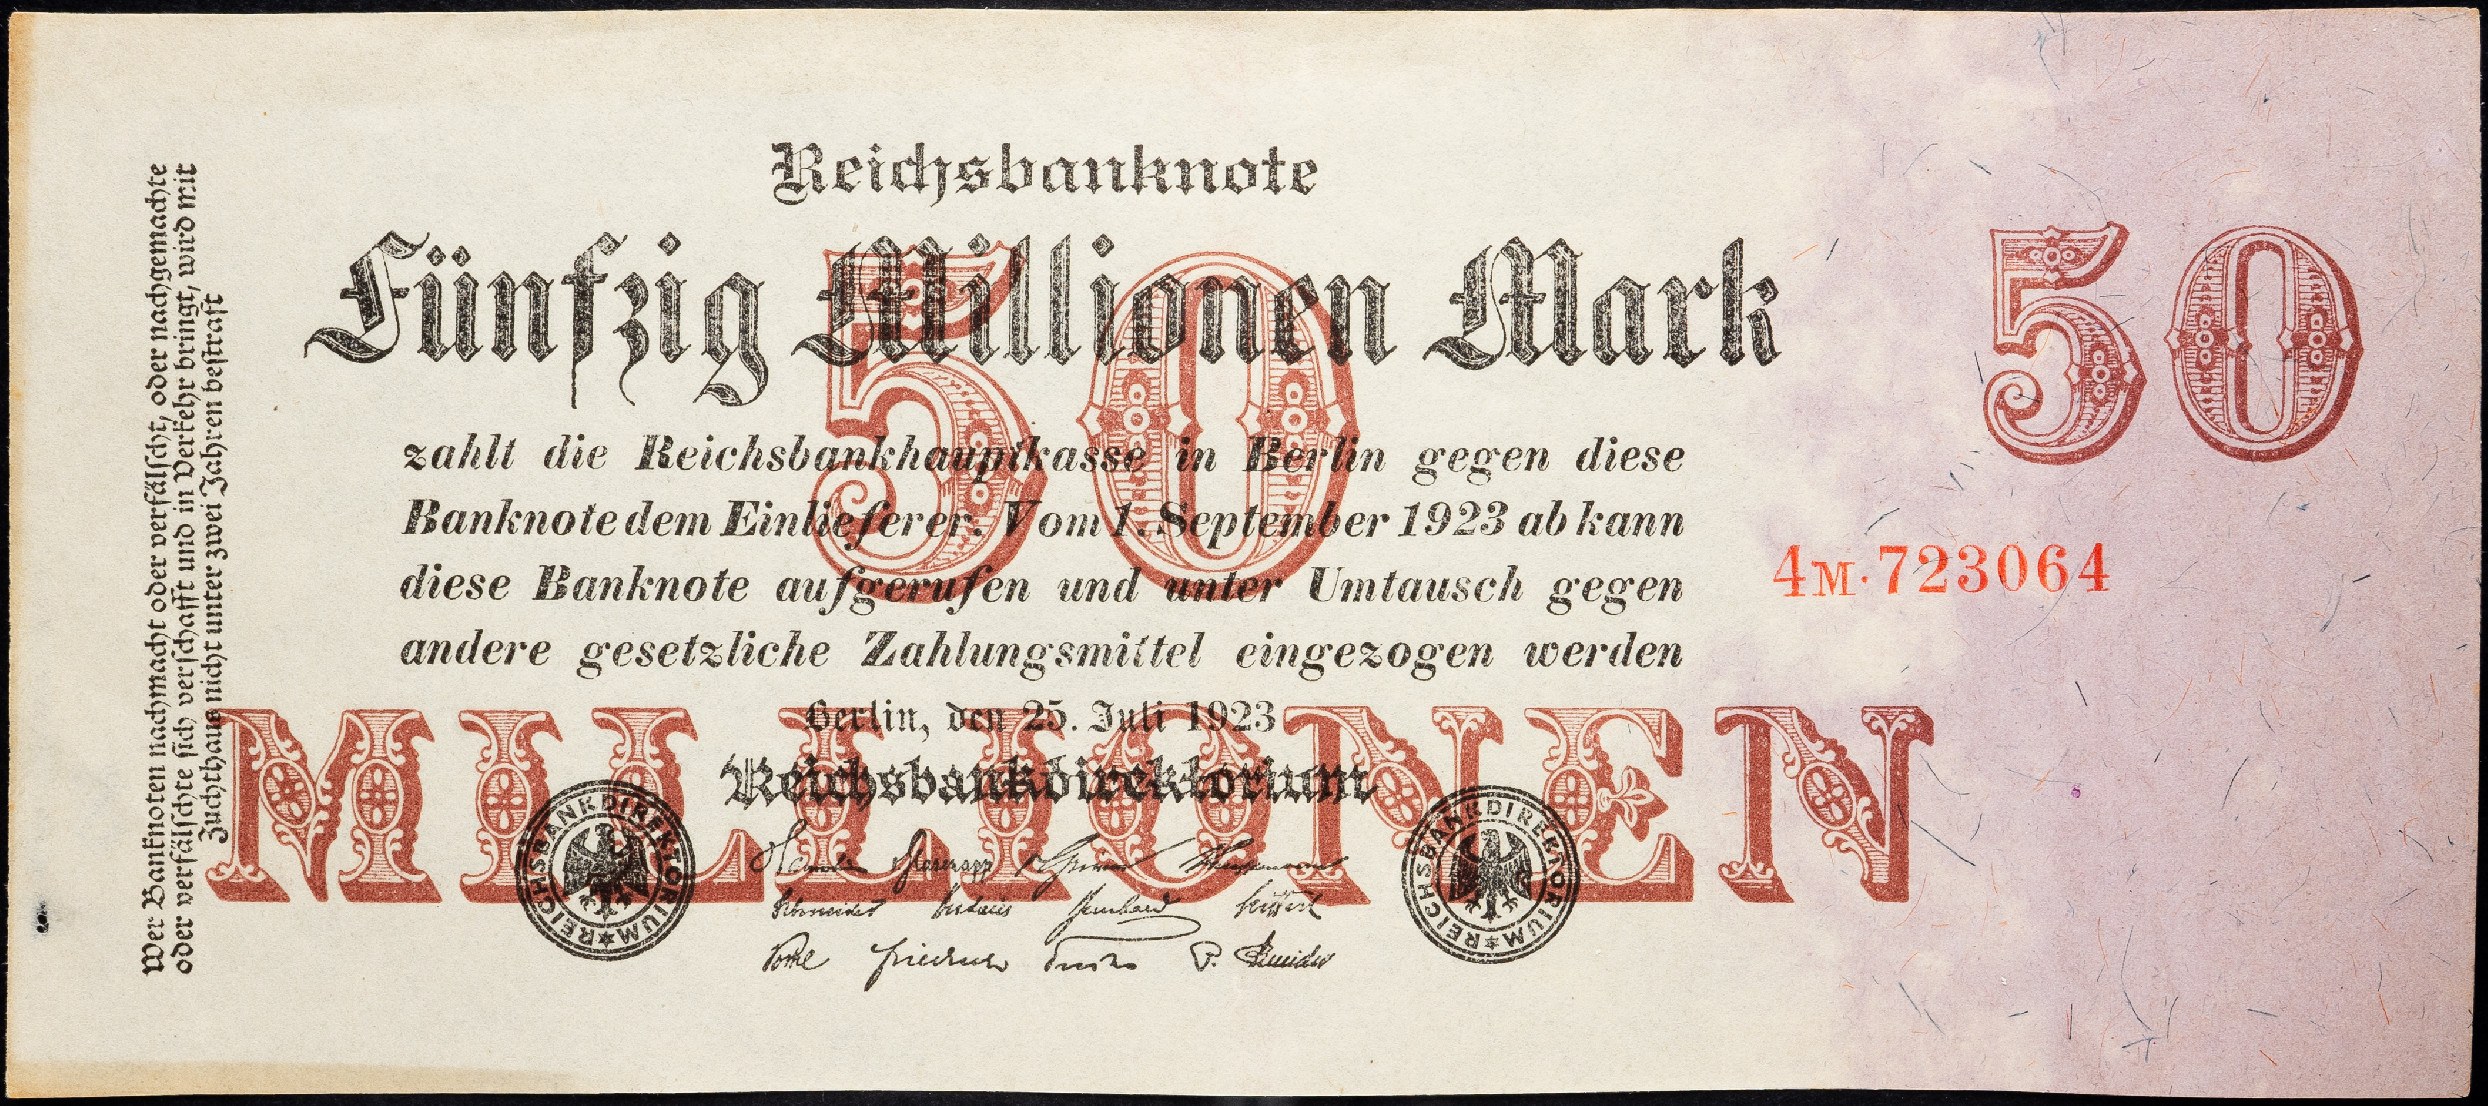 Reichsbanknote
Fünfzig Millionen Mark
50
50
zahlt die Reichsbankhauptkasse in Berlin gegen diese
Banknote dem Einlieferer. Vom 1. September 1923 ab kann
diese Banknote aufgerufen und unter Umtausch gegen
andere gesetzliche Zahlungsmittel eingezogen werden
4M·723064
Berlin, den 25. Juli 1923
MILLIONEN
Reichsbankdirektorium
REICHSBANKDIREKTORIUM
REICHSBANKDIREKTORIUM
Schneider
Bernhard
Seiffert
Friedrich
P. Schneider
Wer Banknoten nachmacht oder verfälscht, oder nachgemachte
oder verfälschte sich verschafft und in Verkehr bringt, wird mit
Zuchthaus nicht unter zwei Jahren bestraft